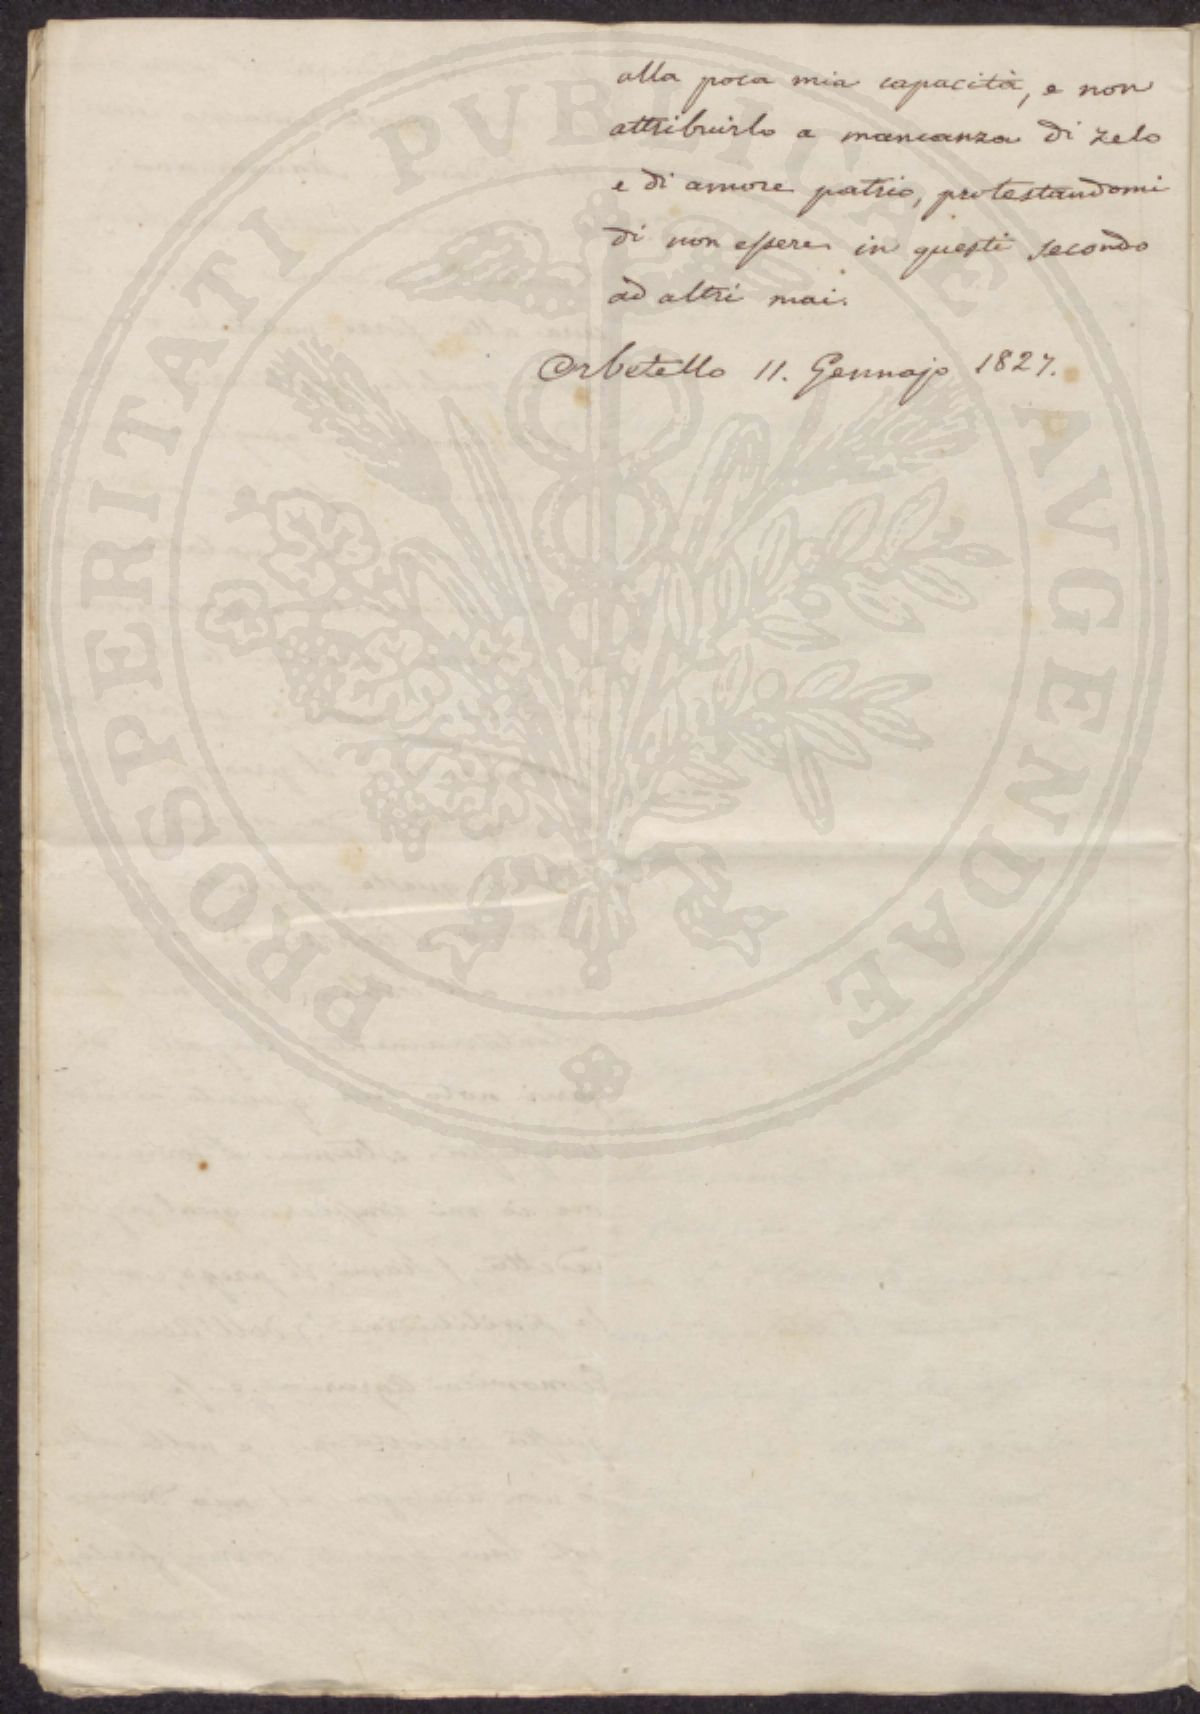 alla poca mia capacità, e non
attribuirlo a mancanza di zelo
e di amore patrio, protestandomi
di non essere in questi secondo
ad altri mai.
Orbetello 11. Gennajo 1827.
PROSPERITATI PVBLICAE AVGENDAE